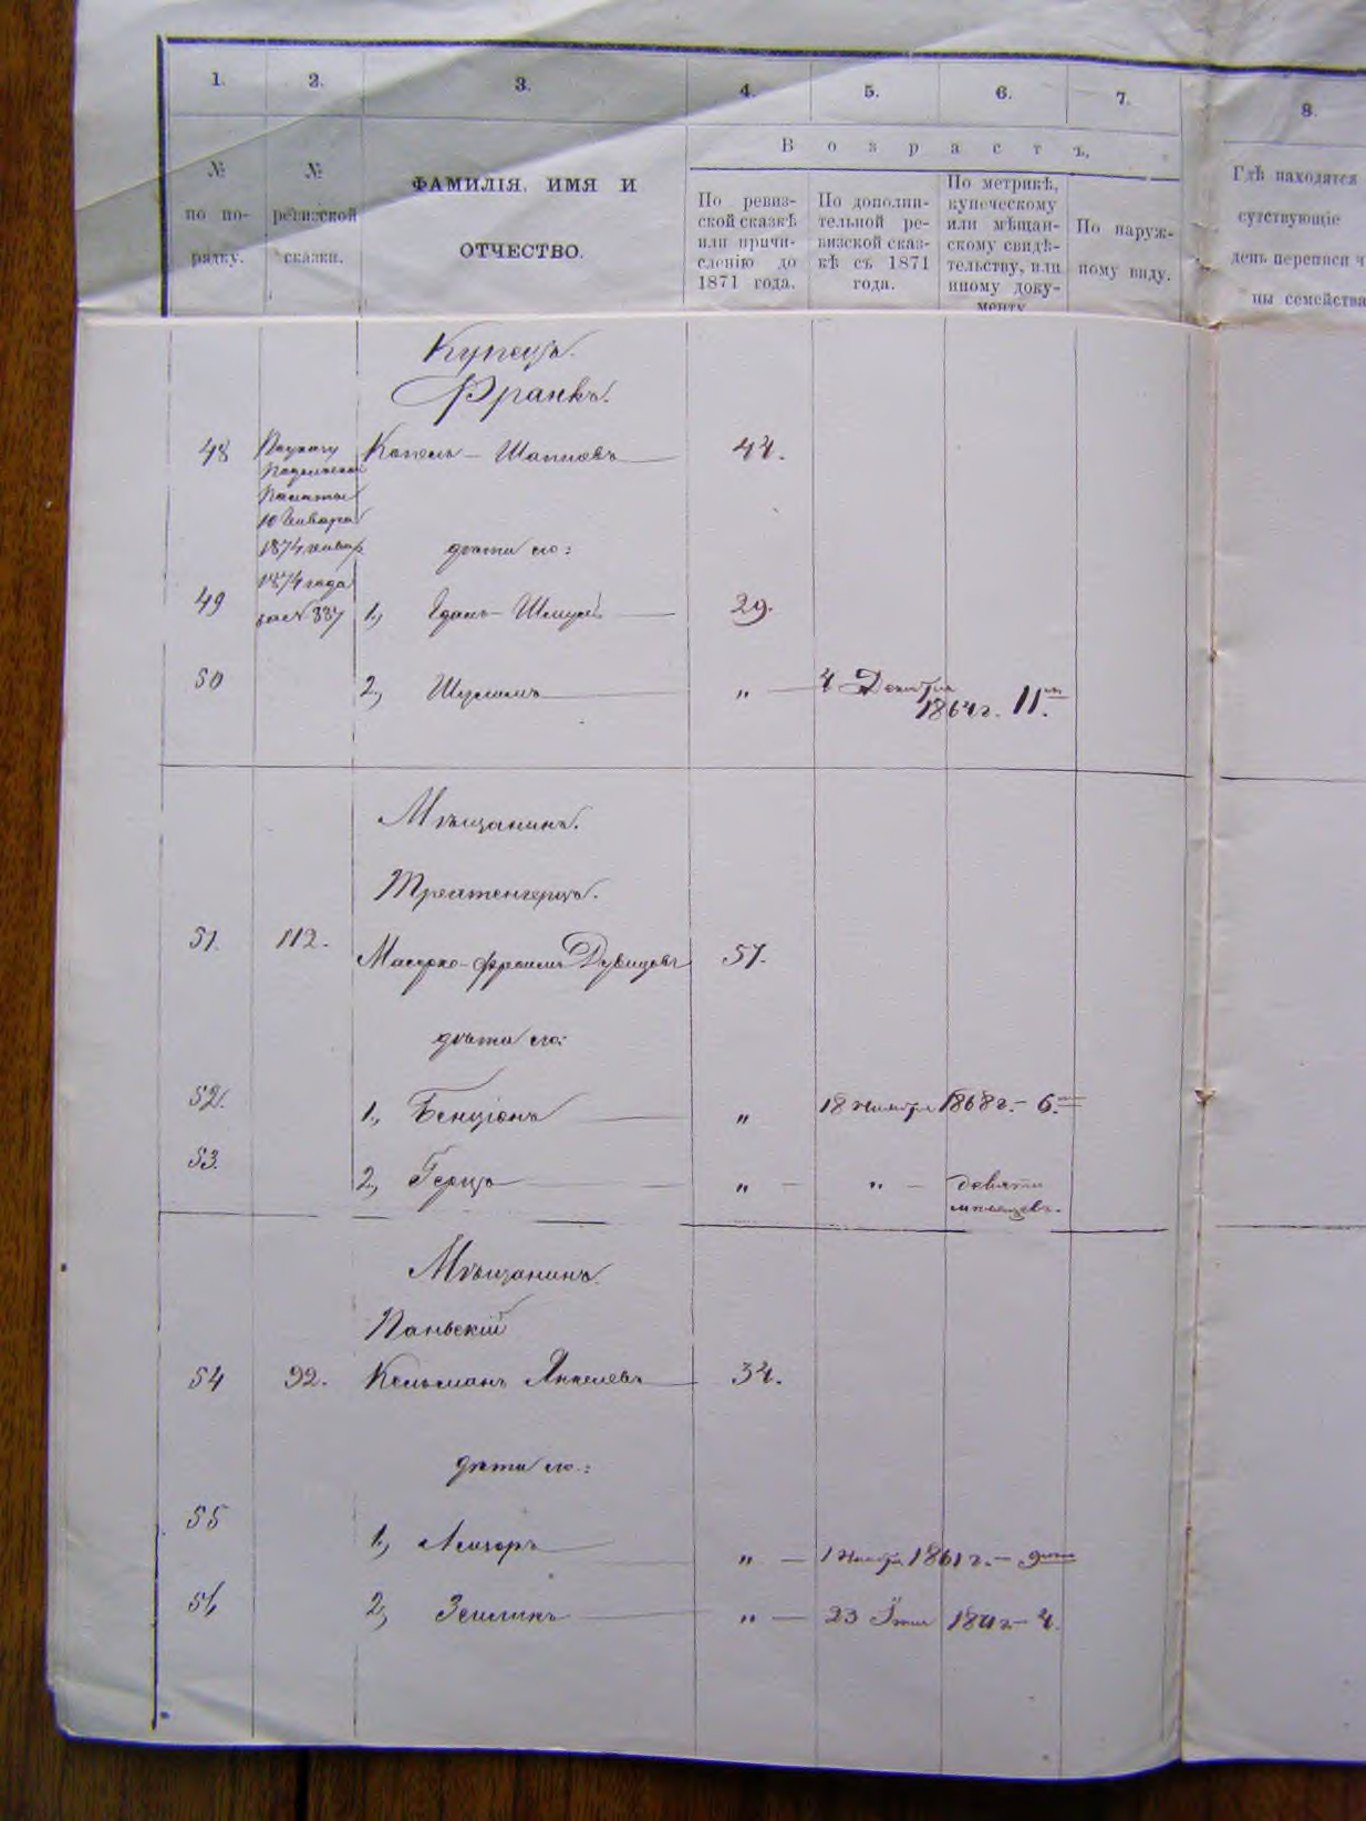 1. 2. 3. 4. 5. 6. 7. 8.
В о з р а с т ъ.
№ по по-рядку.
№ ревизской сказки.
ФАМИЛІЯ, ИМЯ И
ОТЧЕСТВО.
По ревиз-
ской сказкѣ
или причи-
сленію до
1871 года.
По дополни-
тельной ре-
визской сказ-
кѣ съ 1871
года.
По метрикѣ,
купеческому
или мѣщан-
скому свидѣ-
тельству, или
иному доку-
менту
По наруж-
ному виду.
Гдѣ находятся
сутствующіе
день переписи ч
ны семейства
Купецъ.
Франкъ.
48 Копель - 44.
Палаты
10 Января
1874
1874 года
за № 337
дѣти его:
49 1., Шмуль 29.
50 2., " 4 Декабря
1864 г. 11.
Мѣщанинъ.
51. 112. Дувидовъ 57.
дѣти его:
52. 1., Бенціонъ " 18 Ноября 1868 г. - 6.
53. 2., Герцъ " " девяти
мѣсяцевъ.
Мѣщанинъ.
Паньскій
54 92. Кельманъ Янкелевъ 34.
дѣти его:
55 1., Лейзоръ " 1861 г. - 9
56 2., Зейликъ " 23 4.